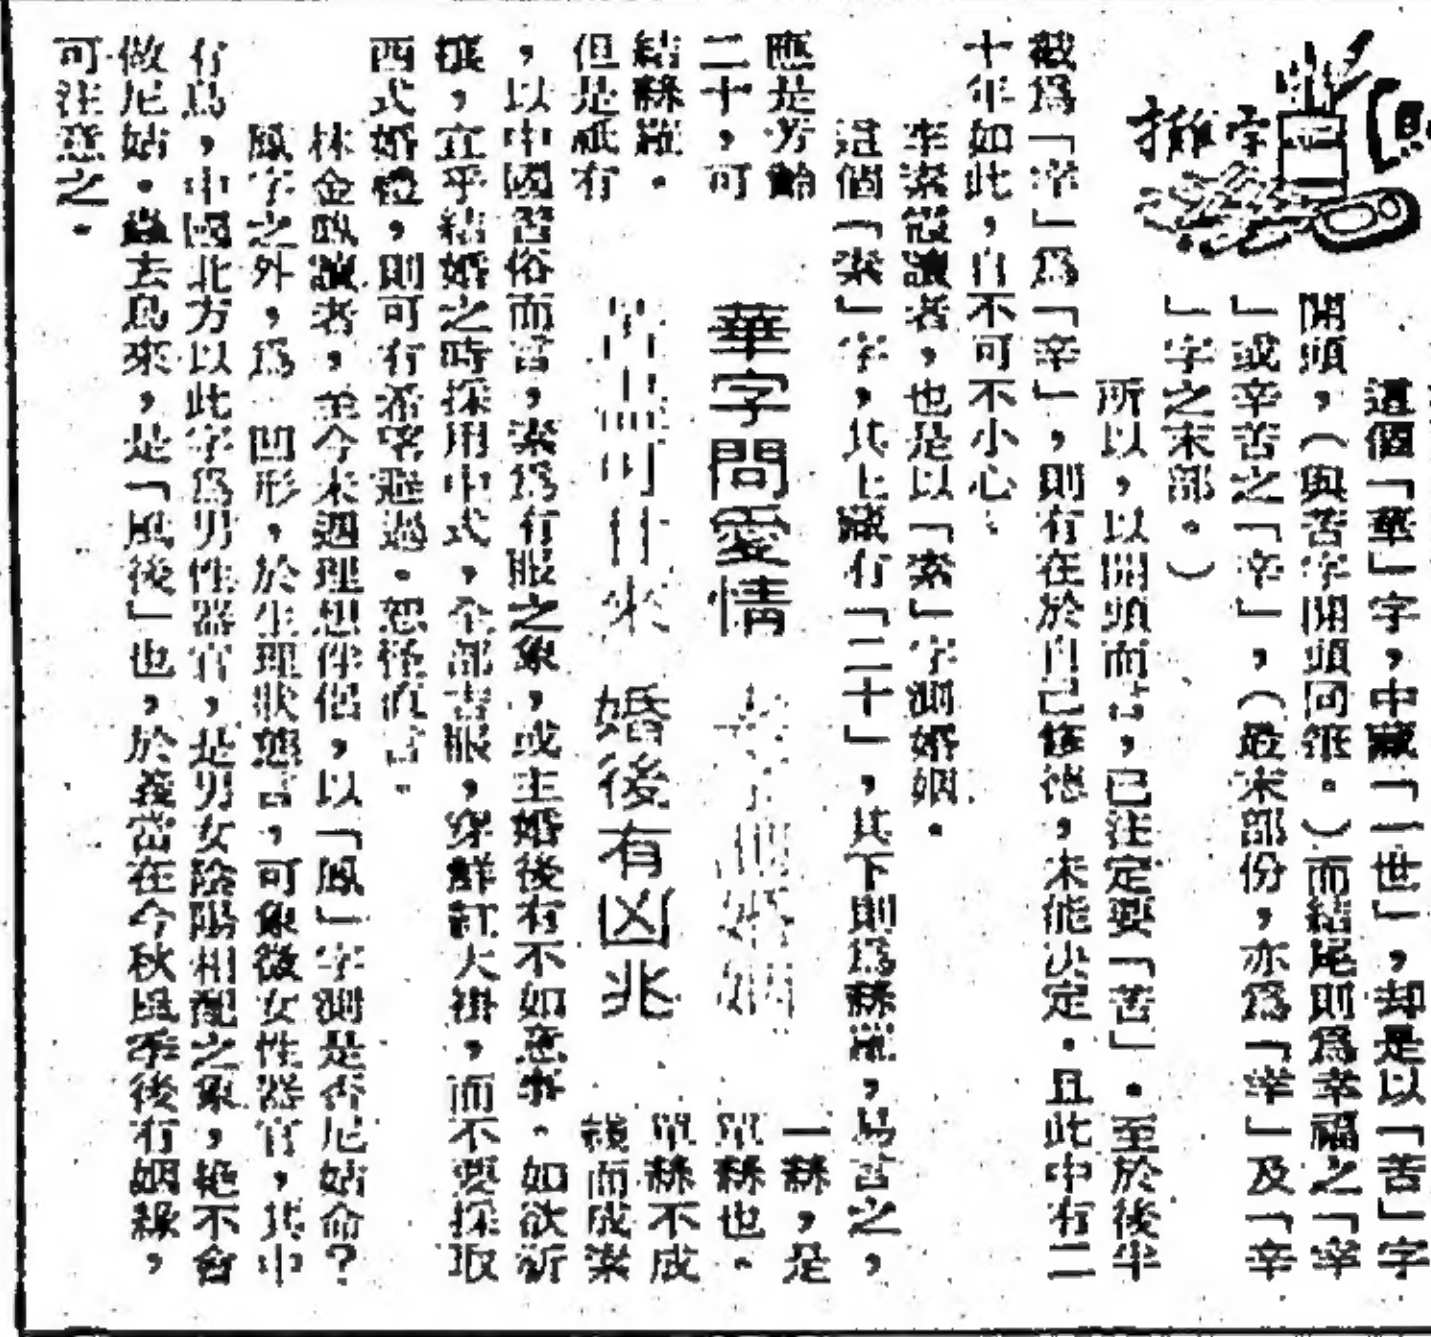 攤字
這個「華」字，中藏「一世」，却是以「苦」字
開頭，（與苦字開頭同從。）而結尾則爲幸福之「幸
」或辛苦之「辛」，（最末部份，亦爲「幸」及「辛
」字之末部。）
所以，以開頭而言，已注定要「苦」。至於後半
截爲「幸」爲「辛」，則有在於自己，未能決定。且此中有二
十年如此，自不可不小心
讀者，也是以「素」字測婚姻。
這個「素」字，其上藏有「二十」，其下則爲絲蘿，易言之，
應是芳齡
二十，可
結絲蘿。
但是祇有
一絲，是
單絲也。
單絲不成
綫而成素
華字問愛情
婚後有凶兆
，以中國習俗而言，素爲有服之象，或主婚後有不如意事。如欲祈
禳，宜乎結婚之時採用中式，全部吉服，穿鮮紅大褂，而不要採取
西式婚禮，則可有希望避過。恕徑直言。
林金鳳讀者，至今未遇理想伴侶，以「鳳」字測是否尼姑命？
鳳字之外，爲凹形，於生理狀態言，可象徵女性器官，其中
有鳥，中國北方以此字爲男性器官，是男女陰陽相配之象，絕不會
做尼姑。蟲去鳥來，是「風後」也，於義當在今秋風季後有姻緣，
可注意之。